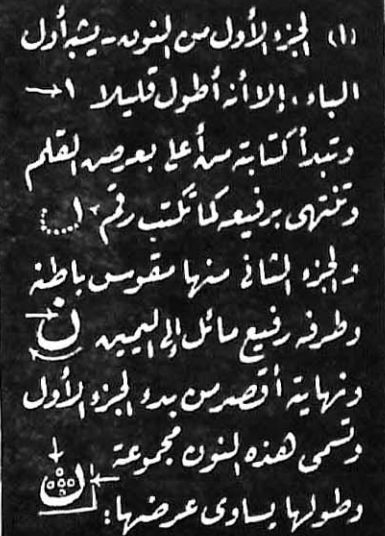 (١) الجزء الأول من النون - يشبه أول
الباء، إلا أنه أطول قليلا ١
وتبدأ كتابته من أعلى بعرض القلم
وتنتهى برفيعه كما تكتب رقم ١
والجزء الثانى منها مقوس باطنه
وطرفه رفيع مائل إلى اليمين ن
ونهايته أقصر من بدء الجزء الأول
وتسمى هذه النون مجموعة
وطولها يساوى عرضها: ن